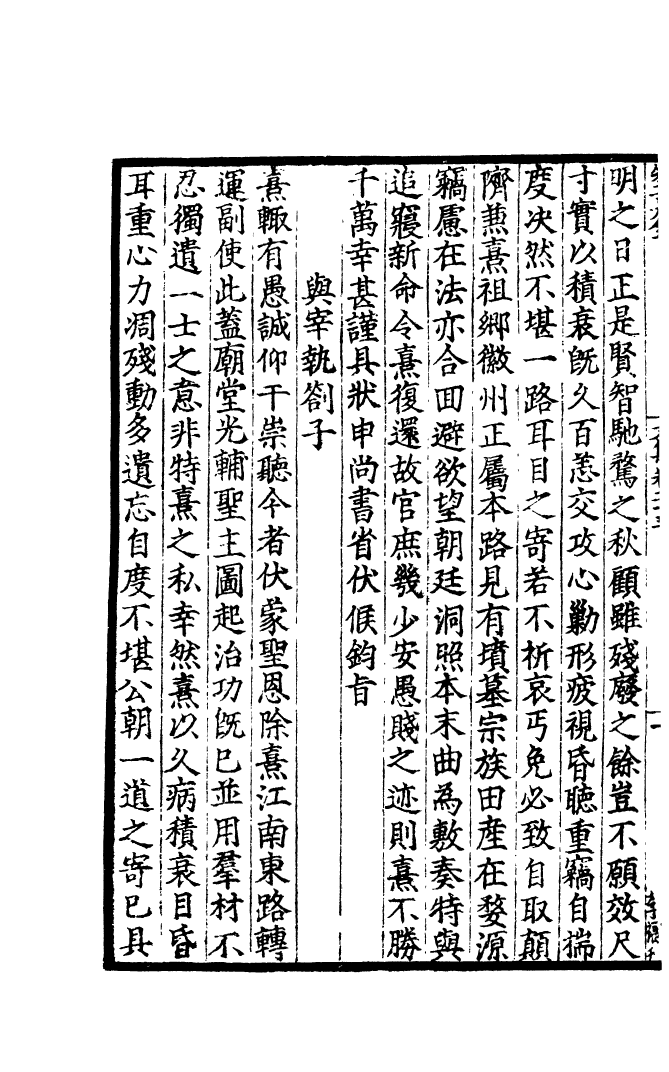 明之日正是賢智馳騖之秋顧雖殘廢之餘豈不願效尺
寸實以積衰旣久百恙交攻心勦形疲視昏聽重竊自揣
度决然不堪一路耳目之寄若不祈哀丐免必致自取顛
隮兼熹祖鄉徽州正屬本路見有墳墓宗族田產在婺源
竊慮在法亦合回避欲望朝廷洞照本末曲為敷奏特與
追寢新命令熹復還故官庶幾少安愚賤之迹則熹不勝
千萬幸甚謹具狀申尚書省伏候鈞旨
與宰執劄子
熹輙有愚誠仰干崇聽今者伏蒙聖恩除熹江南東路轉
運副使此蓋廟堂光輔聖主圖起治功旣已並用羣材不
忍獨遺一士之意非特熹之私幸然熹以久病積衰目昏
耳重心力凋殘動多遺忘自度不堪公朝一道之寄已具